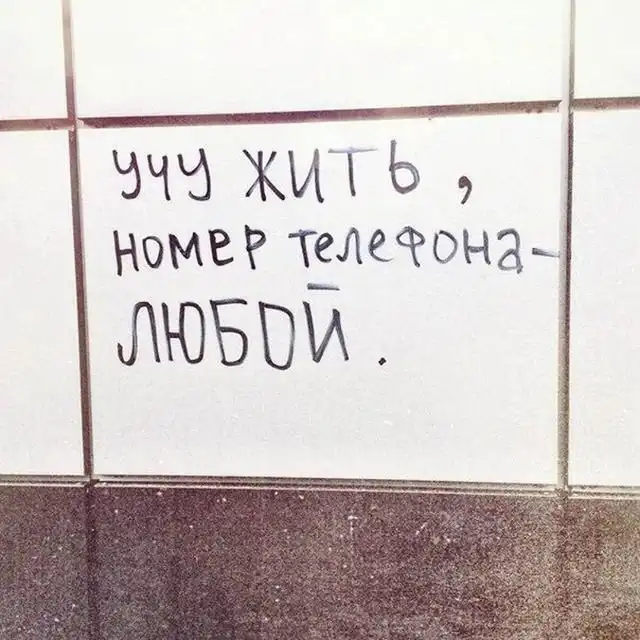 учу жить,
номер телефона–
любой.